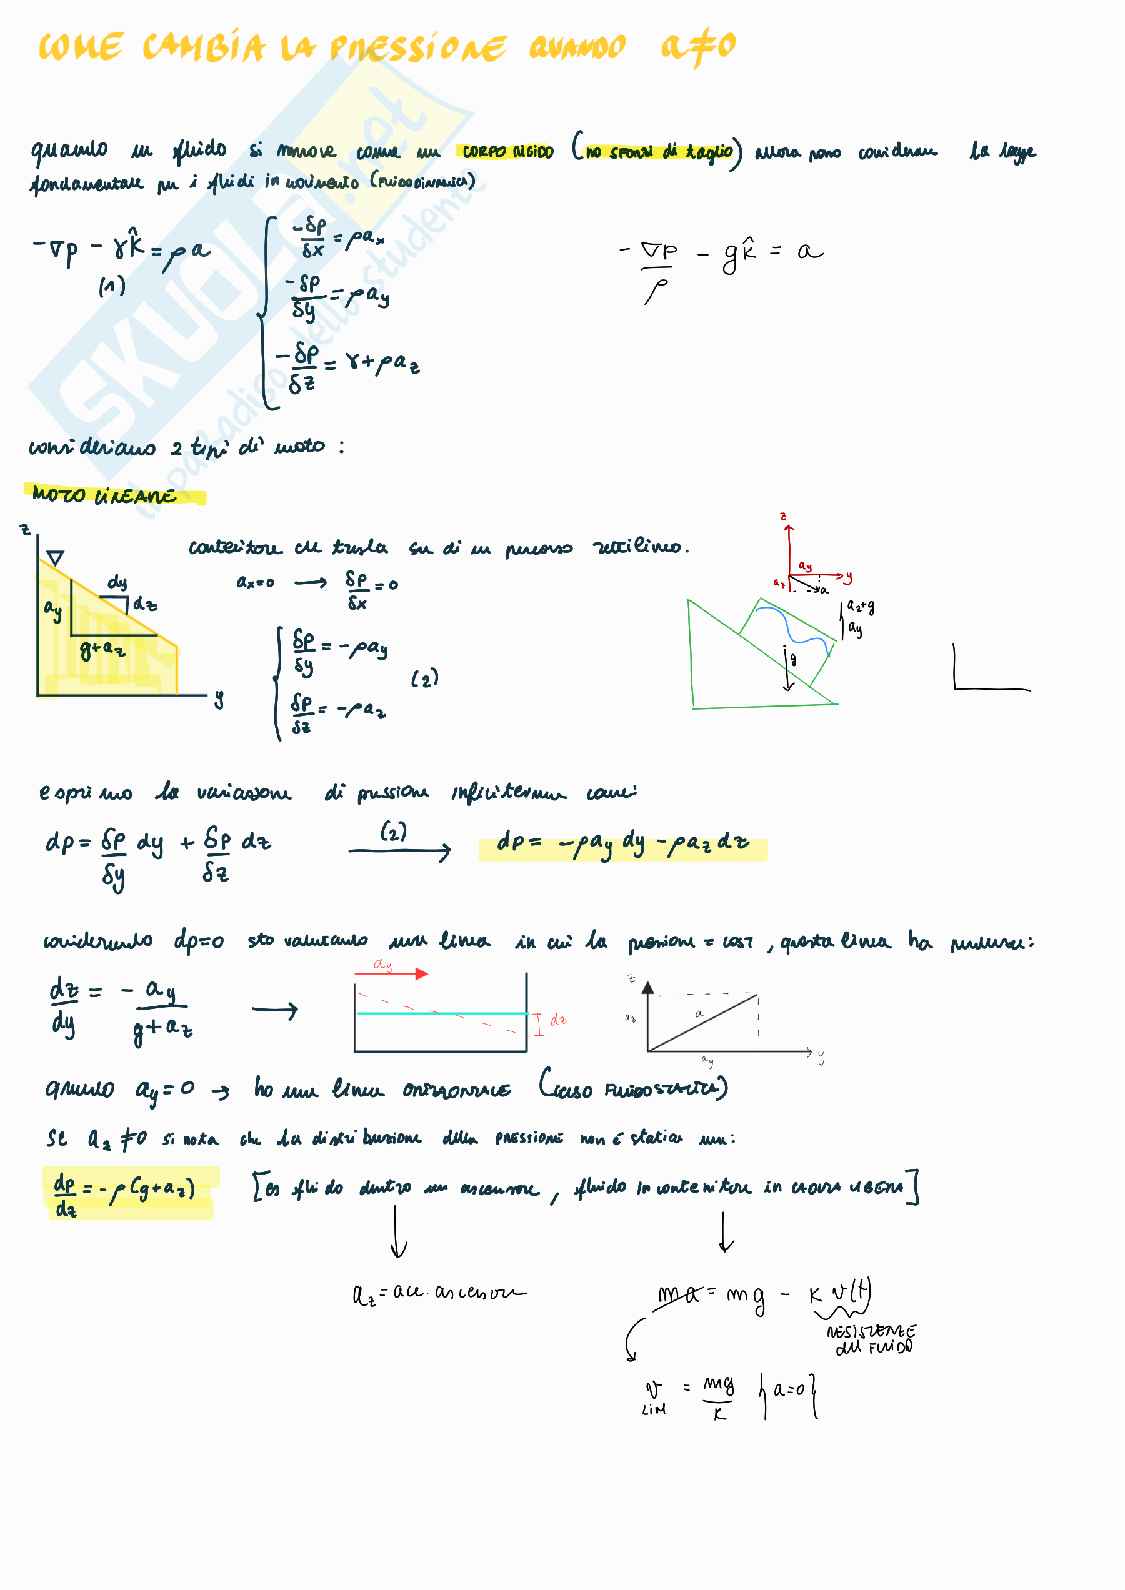 COME CAMBIA LA PRESSIONE QUANDO a≠0
quando un fluido si muove come un CORPO RIGIDO (no sforzi di taglio) allora posso considerare la legge
fondamentale per i fluidi in movimento (FLUIDODINAMICA)
-∇p - γk̂ = ρa
(1)
-δp/δx = ρax
-δp/δy = ρay
-δp/δz = γ + ρaz
-∇p/ρ - gk̂ = a
consideriamo 2 tipi di moto :
MOTO LINEARE
z
ay
dy
dz
g+az
y
contenitore che trasla su di un percorso rettilineo.
ax=0 → δp/δx = 0
δp/δy = -ρay
(2)
δp/δz = -ρaz
z
ay
y
az
a
az+g
ay
g
esprimo la variazione di pressione infinitesima come:
dp = δp/δy dy + δp/δz dz (2) → dp = -ρay dy - ρaz dz
considerando dp=0 sto valutando una linea in cui la pressione = cost, questa linea ha pendenza:
dz/dy = - ay/g+az →
ay
dz
z
az
a
ay
y
quando ay=0 → ho una linea ORIZZONTALE (caso FLUIDOSTATICA)
se az≠0 si nota che la distribuzione della PRESSIONE non è statica ma:
dp/dz = -ρ(g+az) [es fluido dentro un ascensore, fluido in contenitore in CADUTA LIBERA]
az = acc. ascensore
ma = mg - K v(t)
RESISTENZE
DEL FLUIDO
v LIM = mg/K {a=0}
SKUOLA.net
il paradiso dello studente